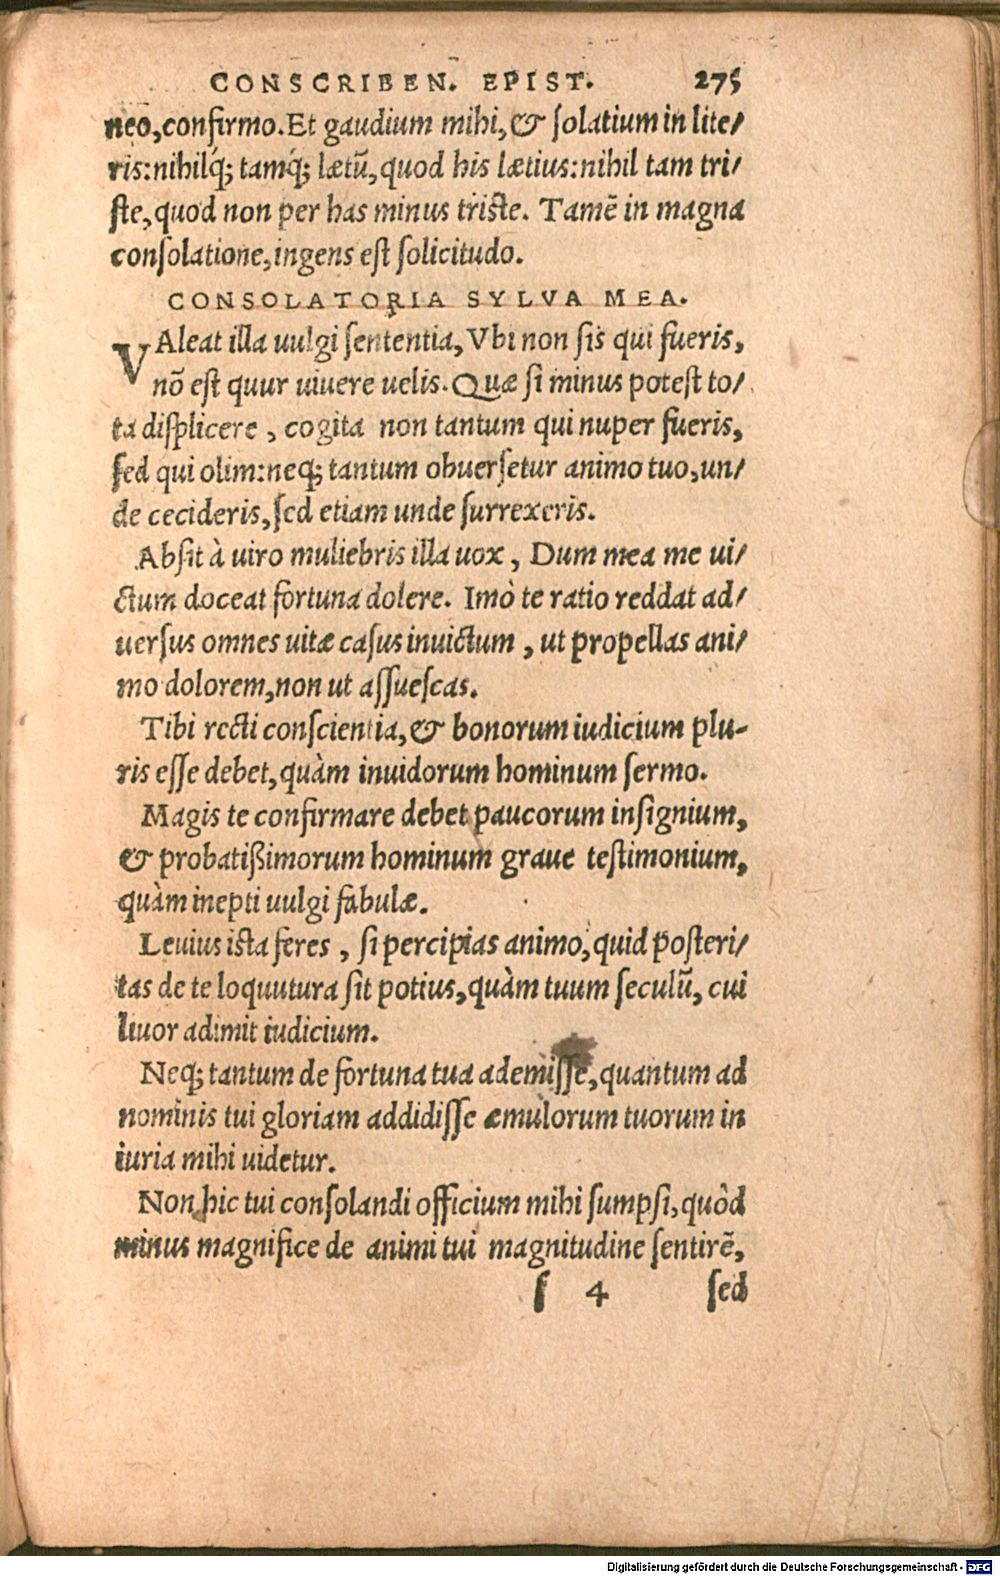 CONSCRIBEN. EPIST. 275
neo, confirmo. Et gaudium mihi, & ſolatium in lite/
ris: nihilq́; tamq́; lætũ, quod his lætius: nihil tam tri/
ſte, quod non per has minus triſte. Tamẽ in magna
conſolatione, ingens eſt ſolicitudo.
CONSOLATORIA SYLVA MEA.
VAleat illa uulgi ſententia, Vbi non ſis qui fueris,
nõ eſt quur uiuere uelis. Quæ ſi minus poteſt to/
ta diſplicere, cogita non tantum qui nuper fueris,
ſed qui olim: neq; tantum obuerſetur animo tuo, un/
de cecideris, ſed etiam unde ſurrexeris.
Abſit à uiro muliebris illa uox, Dum mea me ui/
ctum doceat fortuna dolere. Imò te ratio reddat ad/
uerſus omnes uitæ caſus inuictum, ut propellas ani/
mo dolorem, non ut aſſueſcas.
Tibi recti conſcientia, & bonorum iudicium plu-
ris eſſe debet, quàm inuidorum hominum ſermo.
Magis te confirmare debet paucorum inſignium,
& probatißimorum hominum graue teſtimonium,
quàm inepti uulgi fabulæ.
Leuius iſta feres, ſi percipias animo, quid poſteri/
tas de te loquutura ſit potius, quàm tuum ſeculũ, cui
liuor adimit iudicium.
Neq; tantum de fortuna tua ademiſſe, quantum ad
nominis tui gloriam addidiſſe æmulorum tuorum in
iuria mihi uidetur.
Non hic tui conſolandi officium mihi ſumpſi, quòd
minus magnifice de animi tui magnitudine ſentirẽ,
ſ 4 ſed
Digitalisierung gefördert durch die Deutsche Forschungsgemeinschaft - DFG